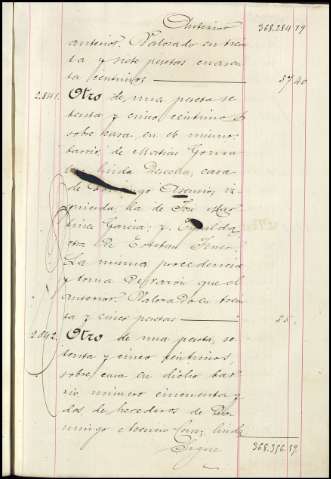 Anterior 368.284.19
anterior. Valorado en trein
ta y siete pesetas cuaren
ta centimos 37.40
2.841. Otro de una peseta se
tenta y cinco centimos
sobre casa, en el mismo
barrio, de Matias
linda Derecha, casa
de Asensio, iz
quierda, la de José Mar
tinez Garcia; y Espalda
otra de Esteban
La misma procedencia
y toma de razon que el
anterior. Valorado en trein
ta y cinco pesetas 35.
2.842. Otro de una peseta, se
tenta y cinco centimos,
sobre casa en dicho bar
rio numero cincuenta y
dos de herederos de Do
mingo Asensio linda
Sigue 368.356.59